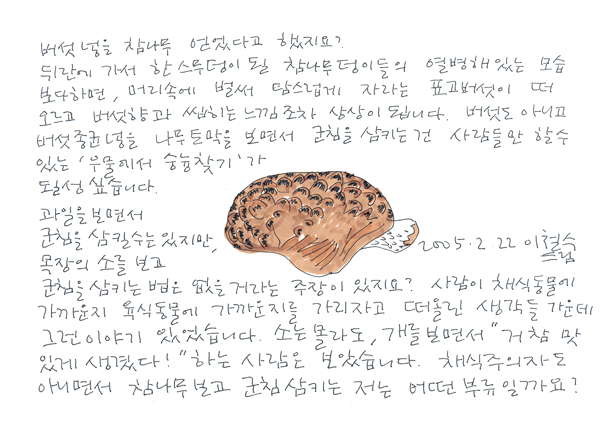 버섯 넣을 참나무 얻었다고 했지요?
뒤란에 가서 한 스무덩이 될 참나무 덩이들의 열병해 있는 모습
보다하면, 머리속에 벌써 탐스럽게 자라는 표고버섯이 떠
오르고 버섯향과 씹히는 느낌조차 상상이 됩니다. 버섯도 아니고
버섯종균 넣을 나무토막을 보면서 군침을 삼키는 건 사람들만 할 수
있는 '우물에서 숭늉찾기'가
될성 싶습니다.
과일을 보면서
군침을 삼킬 수는 있지만,
목장의 소를 보고
2005. 2. 22 이철수
드림
군침을 삼키는 법은 없을 거라는 주장이 있지요? 사람이 채식동물에
가까운지 육식동물에 가까운지를 가리자고 떠올린 생각들 가운데
그런 이야기 있었습니다. 소는 몰라도, 개를 보면서 "거 참 맛
있게 생겼다!" 하는 사람은 보았습니다. 채식주의자도
아니면서 참나무 보고 군침 삼키는 저는 어떤 부류일까요?